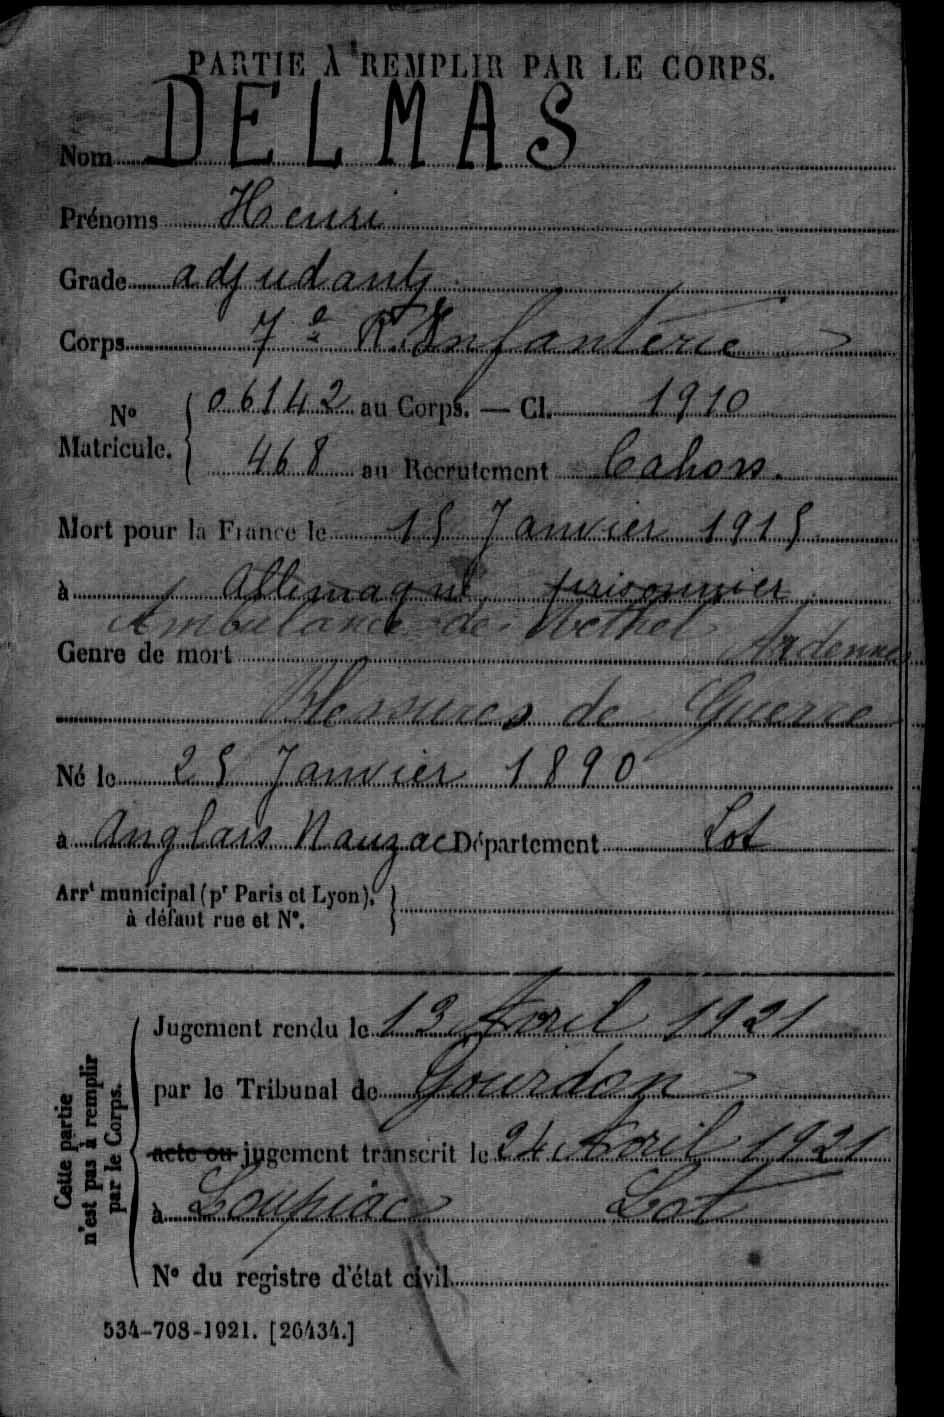 PARTIE À REMPLIR PAR LE CORPS.
Nom DELMAS
Prénoms Henri
Grade adjudant
Corps 7e R. Infanterie
No Matricule. { 06142 au Corps. — Cl. 1910
468 au Recrutement Cahors.
Mort pour la France le 15 Janvier 1915
à Allemagne, prisonnier
Ambulance de Rethel Ardennes
Genre de mort
Blessures de Guerre
Né le 25 Janvier 1890
à Anglars Nauzac Département Lot
Arrt municipal (pr Paris et Lyon),
à défaut rue et No.
Cette partie n'est pas à remplir par le Corps.
Jugement rendu le 13 Avril 1921
par le Tribunal de Gourdon
acte ou jugement transcrit le 24 Avril 1921
à Loupiac Lot
No du registre d'état civil
534-708-1921. [26434.]